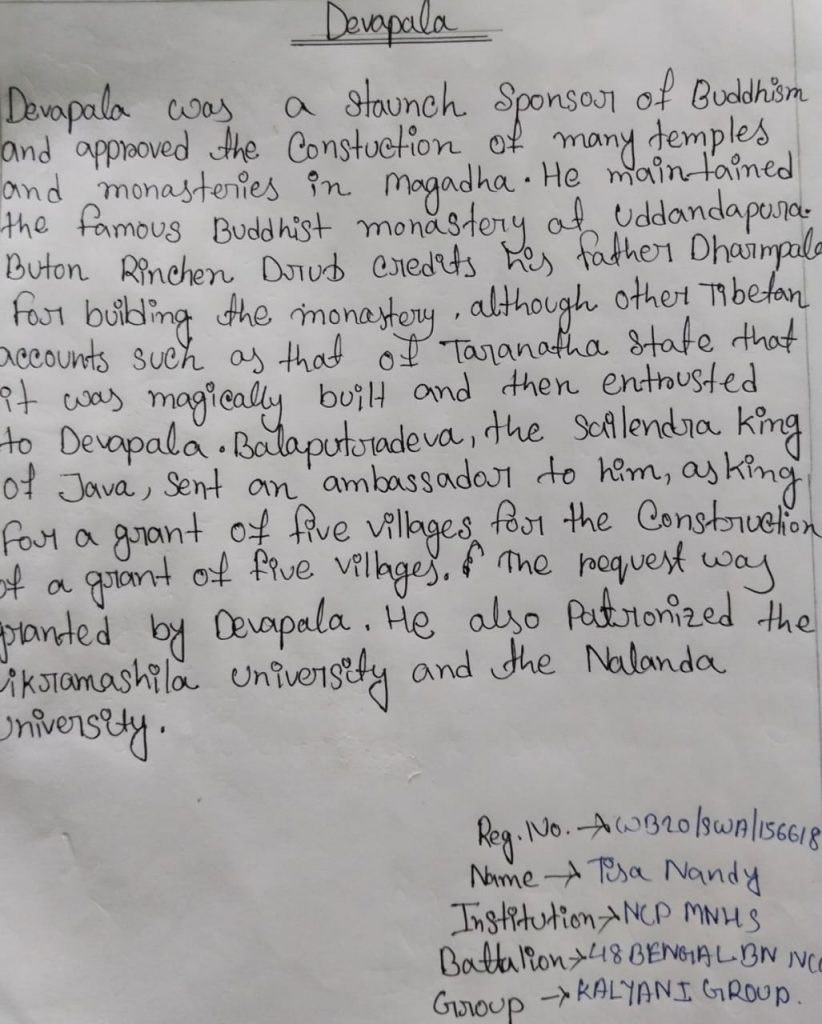 Devapala
Devapala was a staunch Sponsor of Buddhism
and approved the Constuction of many temples
and monasteries in Magadha. He maintained
the famous Buddhist monastery at Uddandapura.
Buton Rinchen Drub credits his father Dharmpala
for building the monastery, although other Tibetan
accounts such as that of Taranatha state that
it was magically built and then entrusted
to Devapala. Balaputradeva, the Sailendra king
of Java, sent an ambassador to him, asking
for a grant of five villages for the Construction
of a grant of five villages. The request way
granted by Devapala. He also Patronized the
ikramashila University and the Nalanda
University.
Reg. No. → WB20/SWA/156618
Name → Tisa Nandy
Institution → NCP MNHS
Battalion → 48 BENGAL BN NCC
Group → KALYANI GROUP.